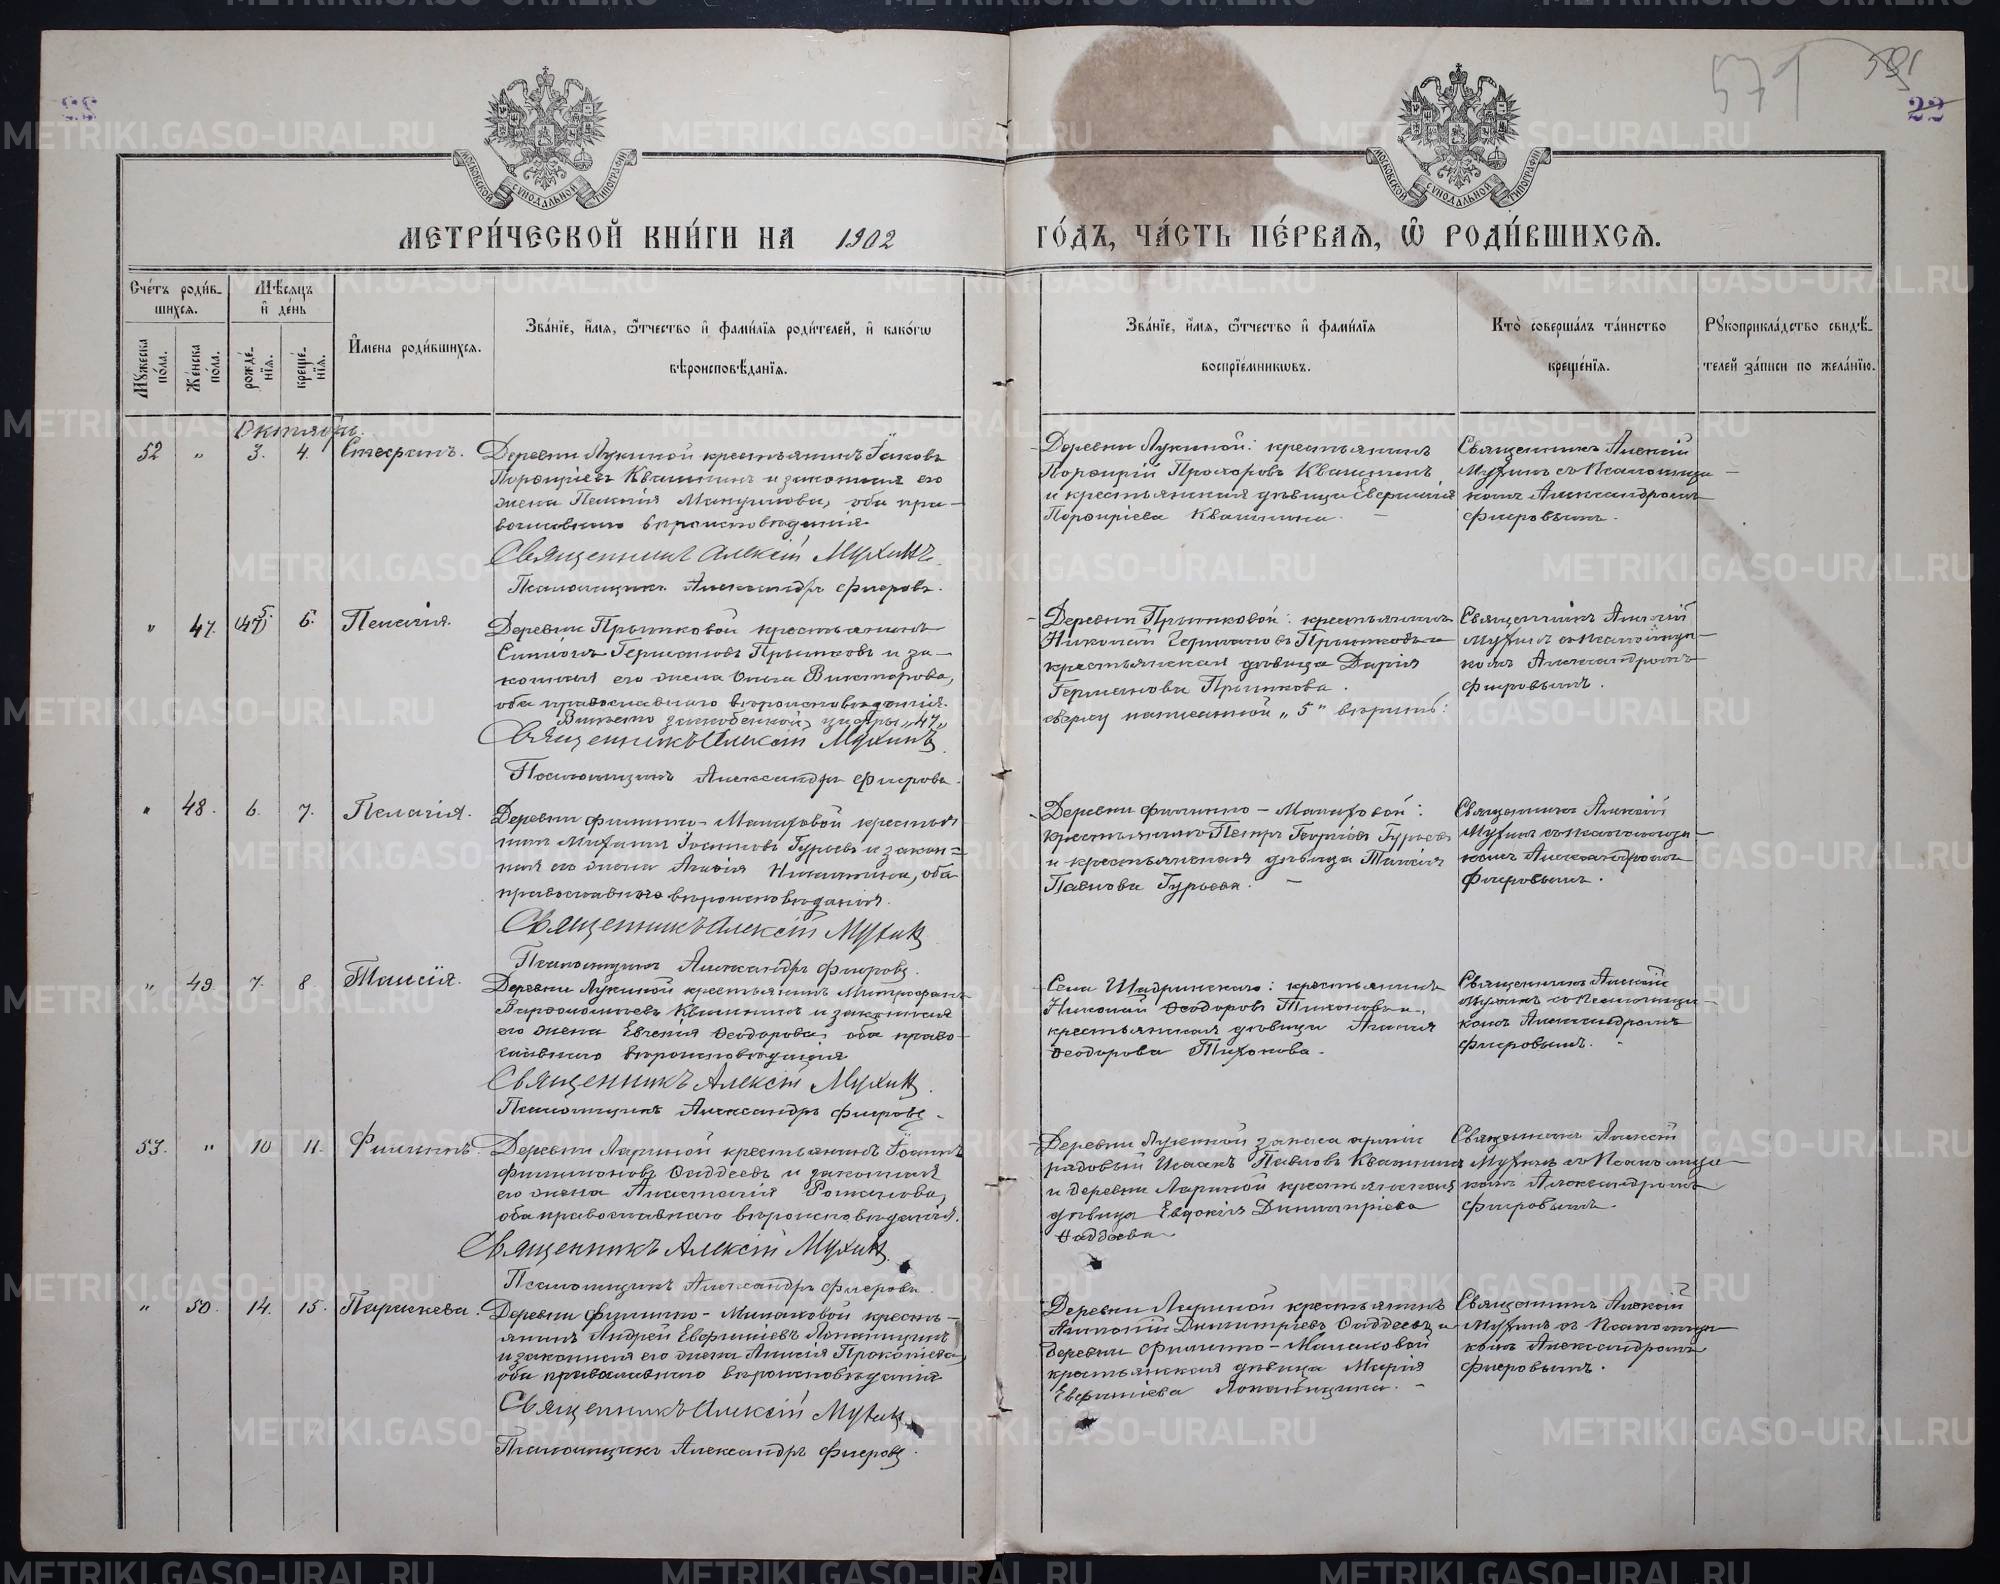 22
571
591
22
МОСКОВСКОЙ СѴНОДАЛЬНОЙ ТИПОГРАФІИ
МОСКОВСКОЙ СѴНОДАЛЬНОЙ ТИПОГРАФІИ
МЕТРИ́ЧЕСКОЙ КНИ́ГИ НА 1902
ГО́ДЪ, ЧА́СТЬ ПЕ́РВАѦ, Ѡ҆ РОДИ́ВШИХСѦ.
Сче́тъ роди́в-
шихсѧ.
Мꙋжеска по́ла.
Же́нска по́ла.
Мѣ́сѧцъ и҆ де́нь
рожде́-нїѧ.
креще́-нїѧ.
И҆мена роди́вшихсѧ.
Зва́нїе, и҆́мѧ, ѻ҆́тчество и҆ фами́лїѧ роди́телей, и҆ како́гѡ
вѣроисповѣ́данїѧ.
Зва́нїе, и҆́мѧ, ѻ҆́тчество и҆ фами́лїѧ
воспрїе́мникѡвъ.
Кто̀ соверша́лъ та́инство
креще́нїѧ.
Рꙋкоприкла́дство свидѣ́-
телей за́писи по жела́нїю.
Октябрь.
52 " 3. 4. Стефанъ.
Деревни Лукиной крестьянинъ Іаковъ
Порфиріевъ Квашнинъ и законная его
жена Пелагія, оба пра-
вославнаго вѣроисповѣданія.
Священникъ Алексій Мухинъ.
Псаломщикъ Александръ Флеровъ.
Деревни Лукиной: крестьянинъ
Порфирій Прохоровъ Квашнинъ
и крестьянская дѣвица Евфимія
Порфиріева Квашнина.
Священникъ Алексій
Мухинъ съ Псаломщи-
комъ Александромъ
Флеровымъ.
" 47. (47) 5. 6. Пелагія.
Деревни Прытковой крестьянинъ
Симеонъ Германовъ Прытковъ и за-
конная его жена Ольга Викторова,
оба православнаго вѣроисповѣданія.
Вмѣсто заскобенной цифры "47"
сверху написанной "5" вѣрить:
Священникъ Алексій Мухинъ
Псаломщикъ Александръ Флеровъ.
Деревни Прытковой: крестьянинъ
Николай Германовъ Прытковъ и
крестьянская дѣвица Дарія
Германова Прыткова.
Священникъ Алексій
Мухинъ съ Псаломщи-
комъ Александромъ
Флеровымъ.
" 48. 6. 7. Пелагія.
крестья-
нинъ Гурьевъ и закон-
ная его жена Никитина, оба
православнаго вѣроисповѣданія.
Священникъ Алексій Мухинъ
Псаломщикъ Александръ Флеровъ.
крестьянинъ Петръ Георгіевъ Гурьевъ
и крестьянская дѣвица Таисія
Павлова Гурьева.
Священникъ Алексій
Мухинъ съ Псаломщи-
комъ Александромъ
Флеровымъ.
" 49 7. 8 Таисія.
Деревни Лукиной крестьянинъ Митрофанъ
Варфоломеевъ Квашнинъ и законная
его жена Евгенія Ѳеодорова, оба право-
славнаго вѣроисповѣданія
Священникъ Алексій Мухинъ.
Псаломщикъ Александръ Флеровъ.
Села Шадринскаго: крестьянинъ
Николай Ѳеодоровъ Тихоновъ и
крестьянская дѣвица
Ѳеодорова Тихонова.
Священникъ Алексій
Мухинъ съ Псаломщи-
комъ Александромъ
Флеровымъ.
53. " 10 11. Филиппъ.
Деревни Лариной крестьянинъ Іоаннъ
Филимоновъ Ѳаддеевъ и законная
его жена Анастасія Романова,
оба православнаго вѣроисповѣданія.
Священникъ Алексій Мухинъ
Псаломщикъ Александръ Флеровъ
Деревни Лукиной запаса арміи
рядовый Исаакъ Павловъ Квашнинъ
и деревни Лариной крестьянская
дѣвица Евдокія Димитріева
Ѳаддеева
Священникъ Алексій
Мухинъ съ Псаломщи-
комъ Александромъ
Флеровымъ.
" 50. 14. 15. Параскева.
кресть-
янинъ Андрей Евфиміевъ
и законная его жена Анисія Прокопіева,
оба православнаго вѣроисповѣданія
Священникъ Алексій Мухинъ
Псаломщикъ Александръ Флеровъ.
Деревни Лариной крестьянинъ
Димитріевъ Ѳаддеевъ и
деревни
крестьянская дѣвица Марія
Евфиміева
Священникъ Алексій
Мухинъ съ Псаломщи-
комъ Александромъ
Флеровымъ.
METRIKI.GASO-URAL.RU